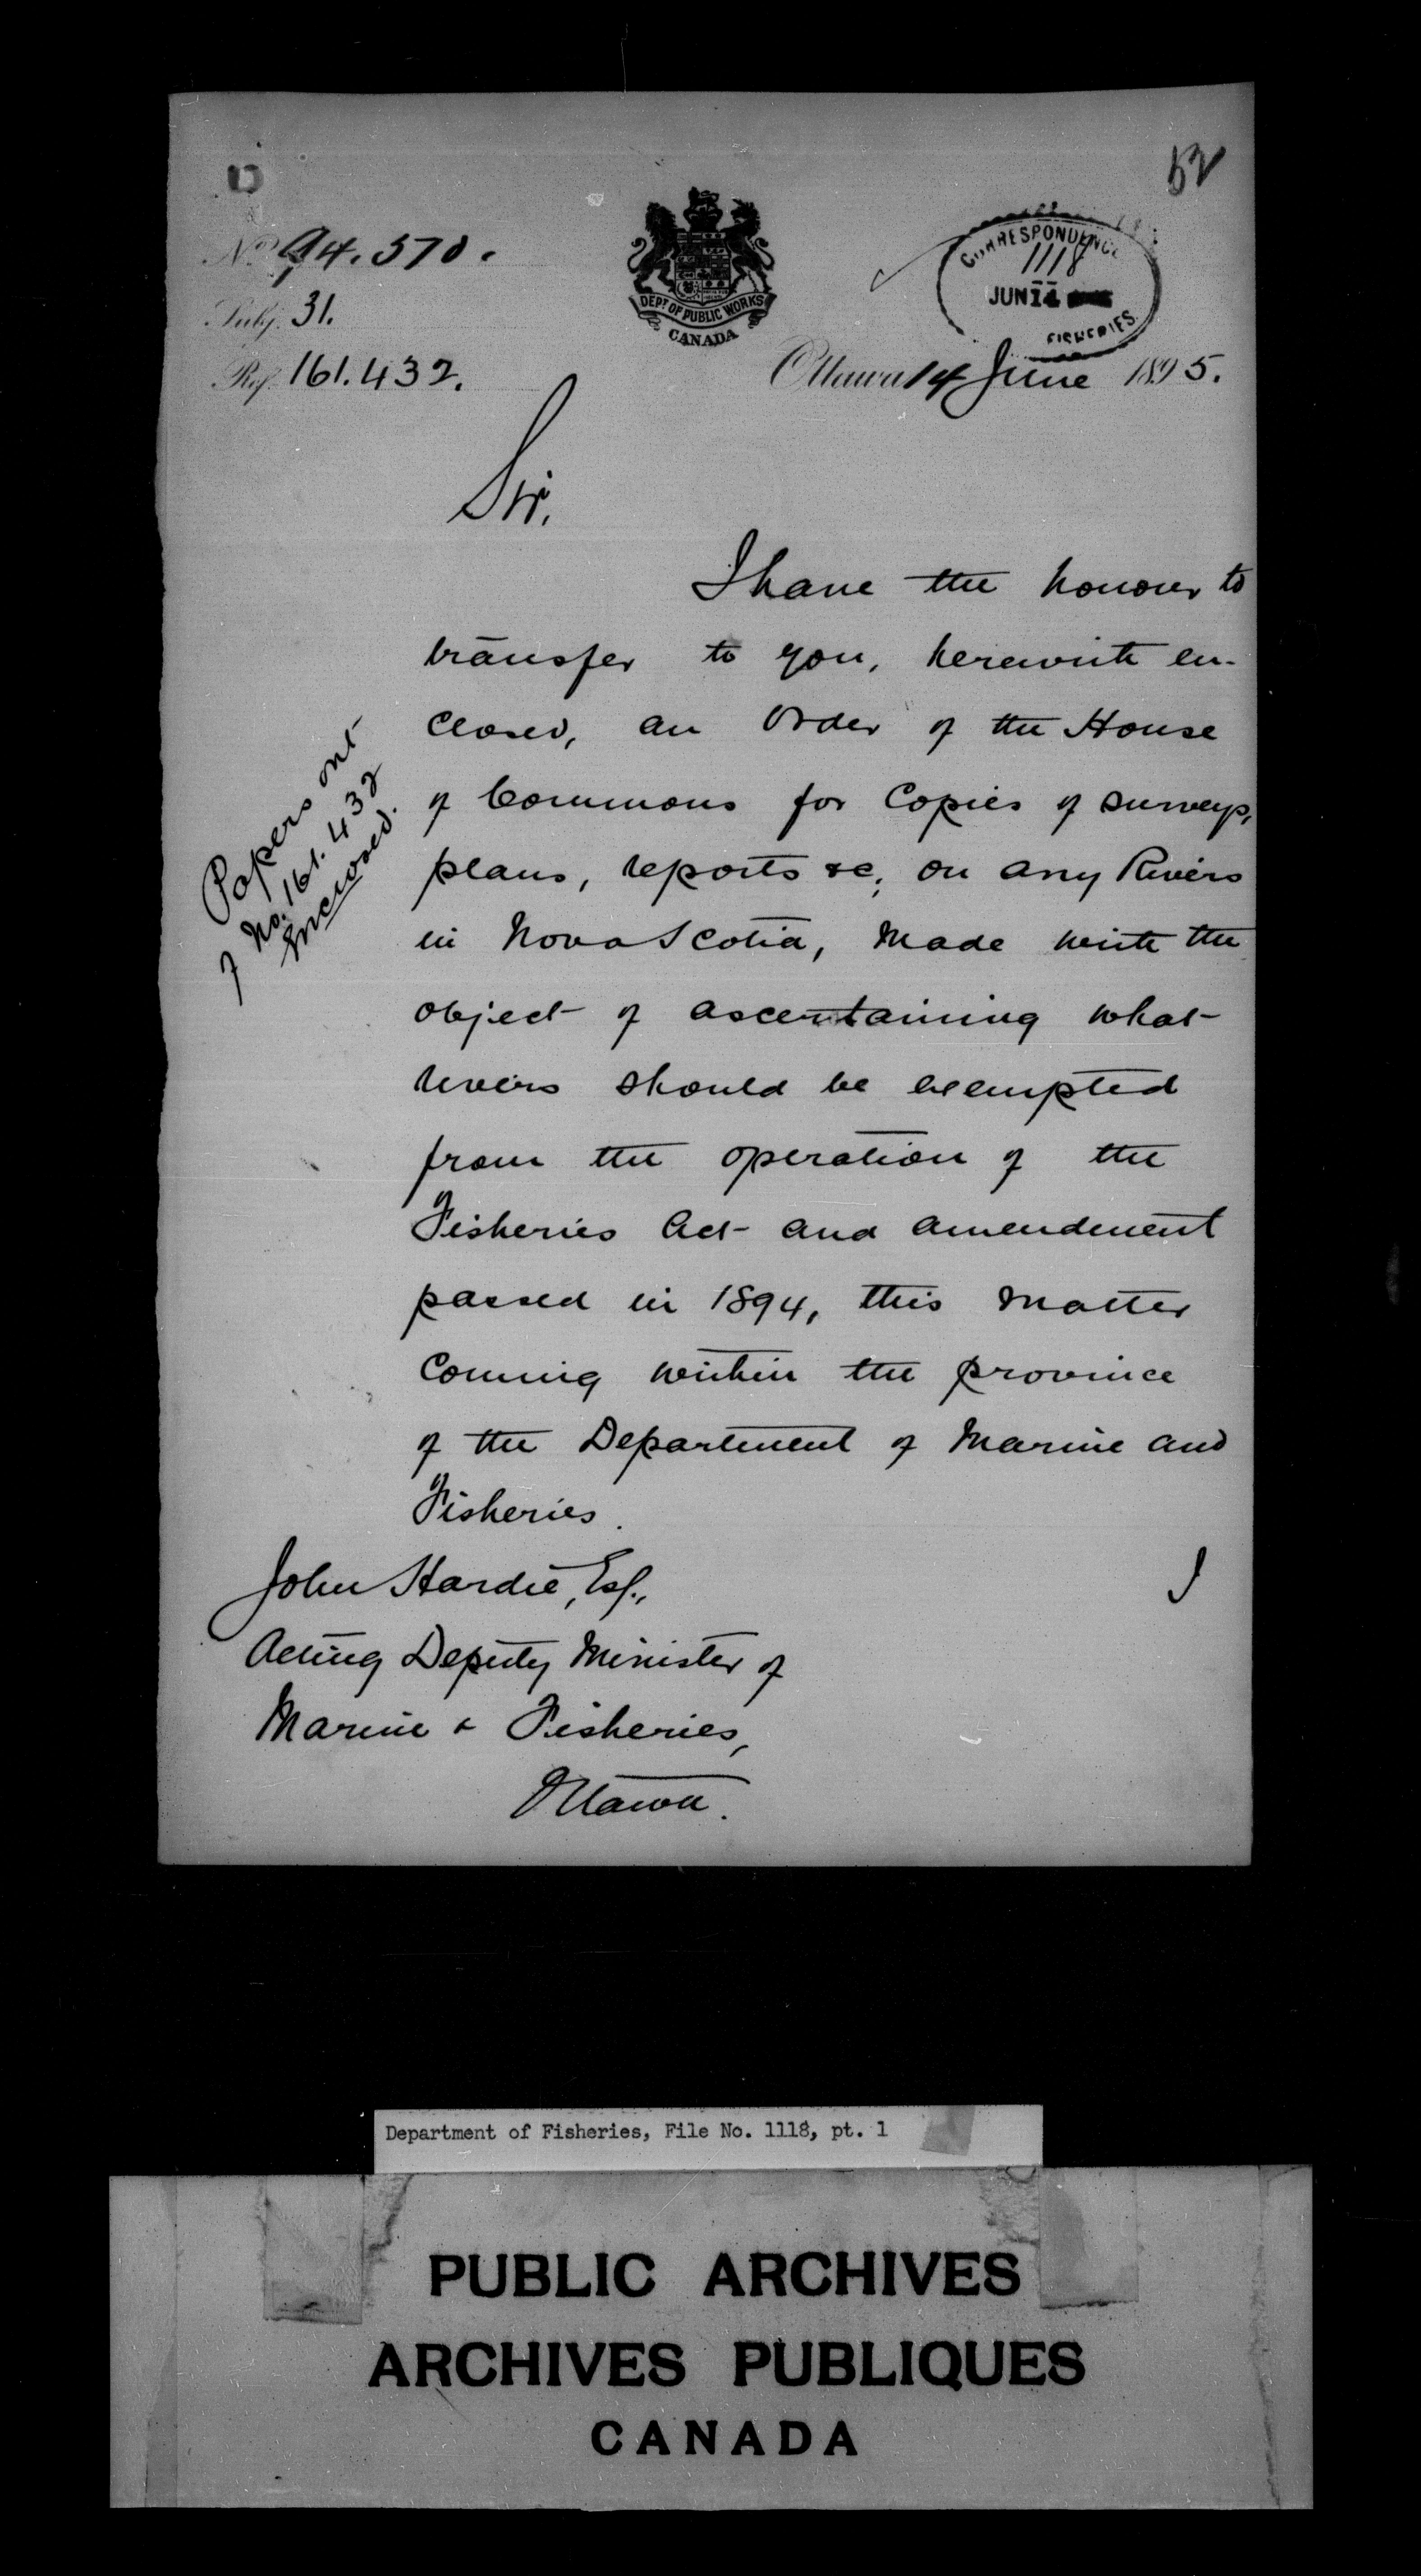 52
No 94.570.
Subj. 31.
Ref. 161.432.
DEPT OF PUBLIC WORKS
CANADA
CORRESPONDENCE
1118
JUN 14
FISHERIES.
Ottawa 14 June 1895.
Sir,
I have the honour to
transfer to you, herewith en-
closed, an Order of the House
of Commons for Copies of surveys,
plans, reports &c, on any Rivers
in Nova Scotia, made with the
object of ascertaining what
rivers should be exempted
from the operation of the
Fisheries Act and amendment
passed in 1894, this matter
coming within the province
of the Department of Marine and
Fisheries.
Papers out
of No. 161.432
Enclosed.
John Hardie, Esq.,
Acting Deputy Minister of
Marine & Fisheries,
Ottawa.
I
Department of Fisheries, File No. 1118, pt. 1
PUBLIC ARCHIVES
ARCHIVES PUBLIQUES
CANADA